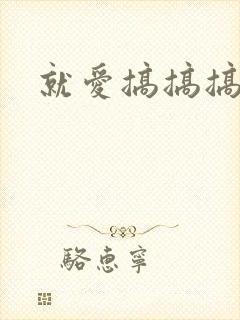 就愛搞搞搞
駱惠寧